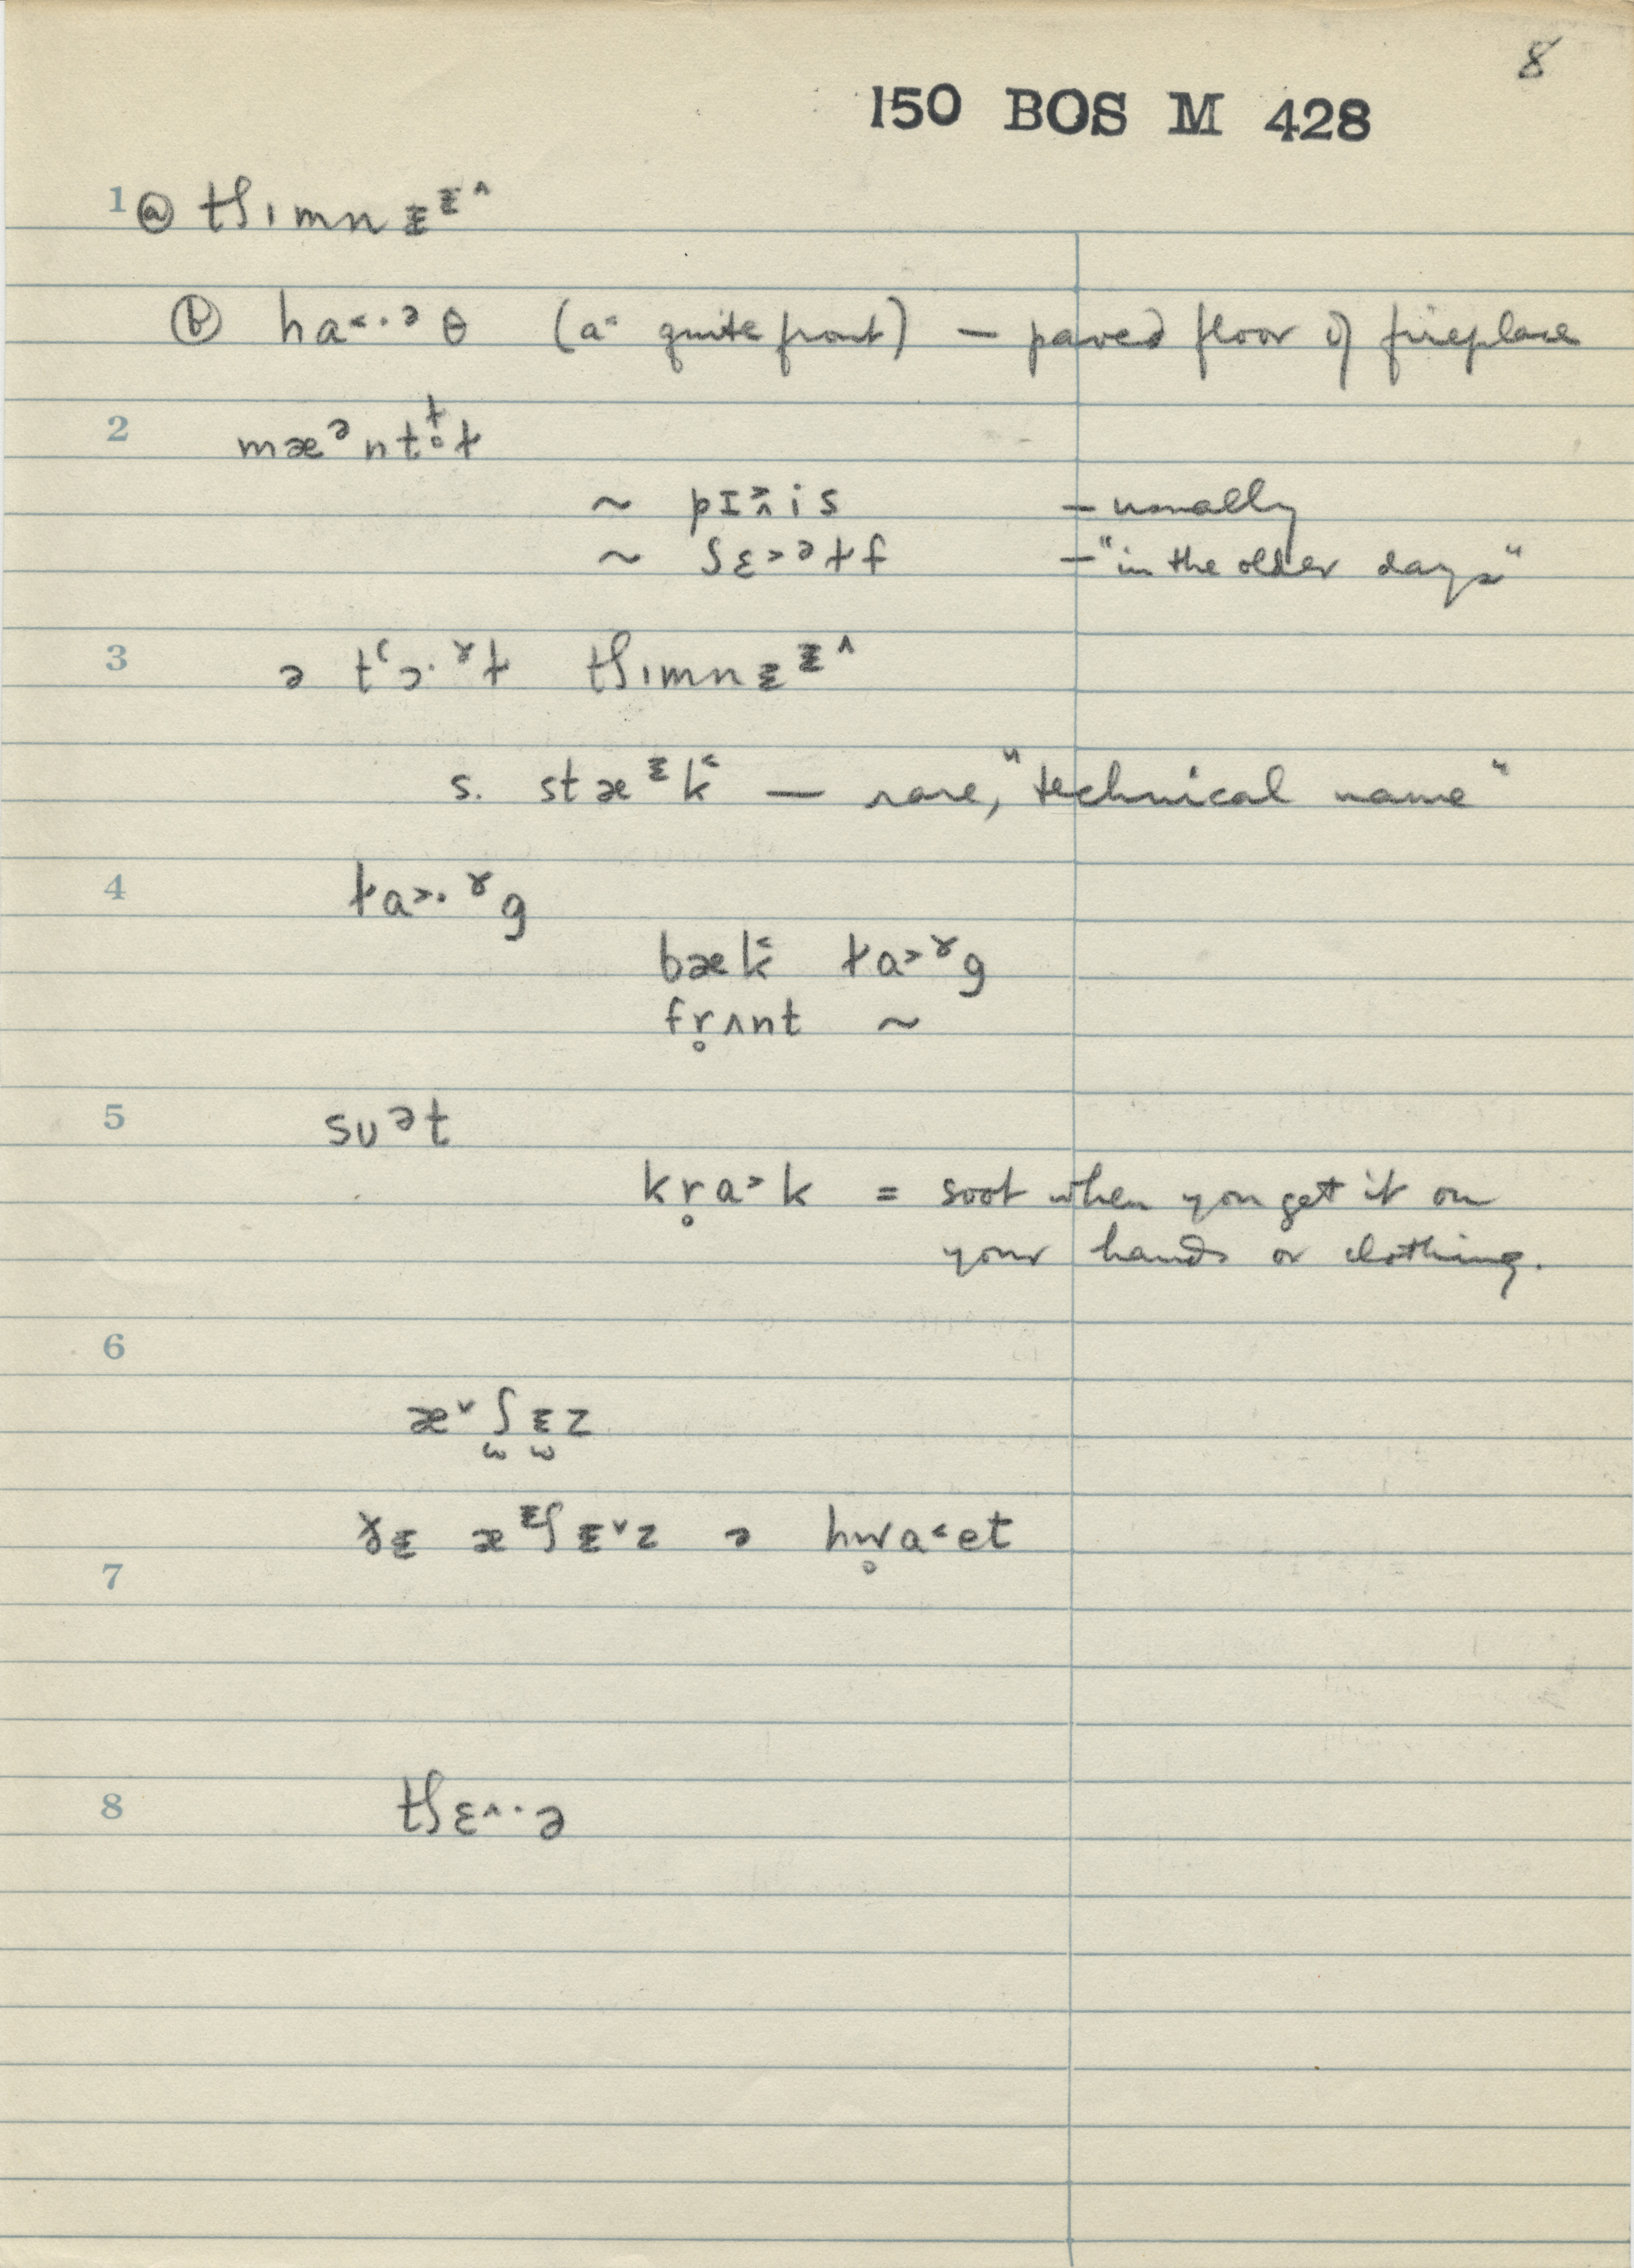 8
150 BOS M 428
1 ⓐ tʃımnᵻᵻ^
ⓑ ha<·ᵊθ (a< quite front) — paved floor of fireplace
2 mæᵊntɫ̥ɫ
~ pɪ>^is — usually
~ ʃɛ>ᵊɫf — "in the older days"
3 ə tʻɔ·ˠɫ tʃımnᵻᵻ^
s. stæᵻk< — rare, "technical name"
4 ɫa>·ˠg
bæk< ɫa>ˠg
fr̥ʌnt ~
5 sʊᵊt
kr̥a>k = soot when you get it on
your hands or clothing.
6
æ˅ʃᵻz
7 ɤᵻ æᵻʃᵻ˅z ə hw̥a<et
8 tʃɛ^·ə